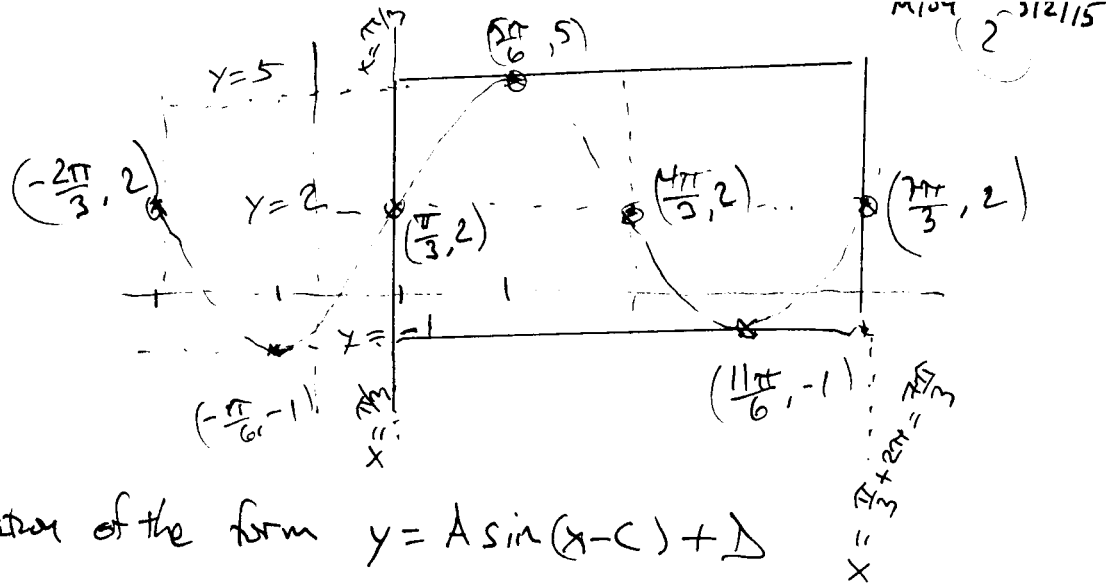 2 3/2/15
x = π/3
(5π/6, 5)
y = 5
(-2π/3, 2)
y = 2
(π/3, 2)
(4π/3, 2)
(7π/3, 2)
y = -1
(-π/6, -1)
(11π/6, -1)
x = π/3
x = π/3 + 2π = 7π/3
of the form y = A sin(x-C) + D